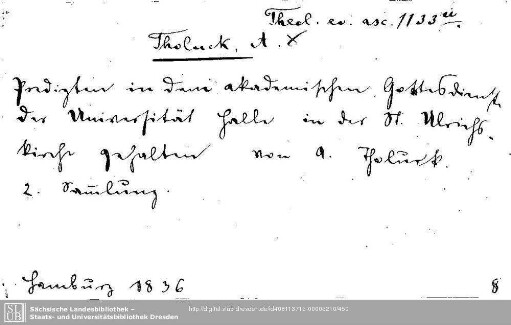 Theol. ev. asc. 1133
Tholuck, A.
Predigten in dem akademischen Gottesdienste
der Universität Halle in der St. Ulrichs-
kirche gehalten von A. Tholuck.
2. Sam̄lung.
Hamburg 1836
8
Sächsische Landesbibliothek –
Staats- und Universitätsbibliothek Dresden